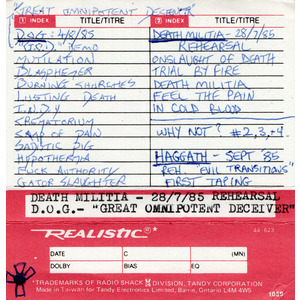 "GREAT OMNIPOTENT DECEIVER"
1 INDEX TITLE/TITRE
D.O.G: 4/8/85
"G.O.D." DEMO
MUTILATION
BLASPHEMER
BURNING CHURCHES
LUSTING DEATH
I.N.D.Y.
KREMATORIUM
CAMP OF PAIN
SADISTIC PIG
HYPOTHERMIA
FUCK AUTHORITY
GATOR SLAUGHTER
2 INDEX TITLE/TITRE
DEATH MILITIA - 28/7/85
REHEARSAL
ONSLAUGHT OF DEATH
TRIAL BY FIRE
DEATH MILITIA
FEEL THE PAIN
IN COLD BLOOD
WHY NOT? #2,3,+4.
HAGGATH - SEPT '85
REH. "EVIL TRANSITIONS"
FIRST TAPING
DEATH MILITIA - 28/7/85 REHEARSAL
D.O.G.- "GREAT OMNIPOTENT DECEIVER"
REALISTIC
44 623
DATE C (MIN)
DOLBY BIAS EQ
*TRADEMARKS OF RADIO SHACK DIVISION, TANDY CORPORATION
Made in Taiwan for Tandy Electronics Limited, Barrie, Ontario L4M 4W5